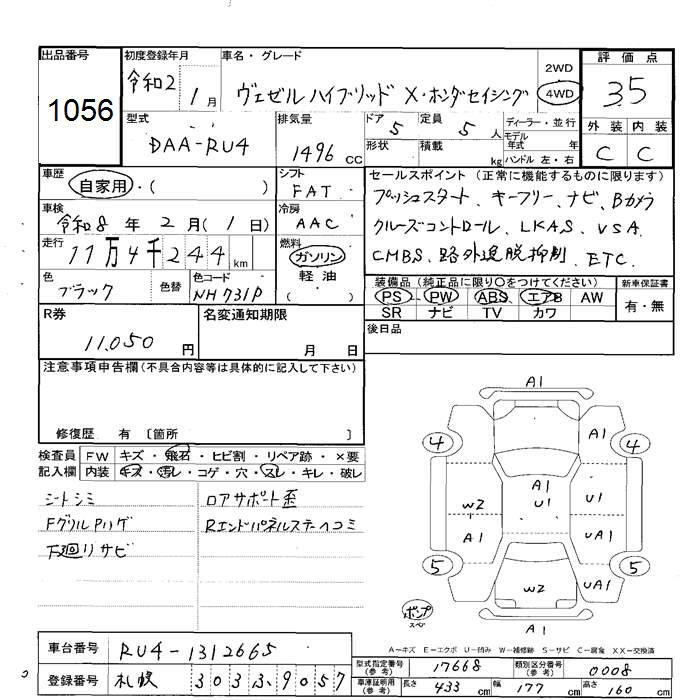 出品番号 初度登録年月 車名・グレード 2WD 評価点
1056 令和2 1月 ヴェゼルハイブリッド X・ホンダセイシング 4WD 3.5
型式 排気量 ドア 5 定員 5人 ディーラー・並行 外装 内装
DAA-RU4 1496 cc 形状 積載 kg モデル年式 年 C C
ハンドル 左・右
車歴 シフト セールスポイント (正常に機能するものに限ります)
自家用・( ) FAT プッシュスタート、キーフリー、ナビ、Bカメラ
車検 冷房
令和8年2月(1日) AAC クルーズコントロール、LKAS、VSA、
走行 燃料
11万4千244km ガソリン CMBS、路外逸脱抑制、ETC.
軽油
( )
色 色替 色コード 装備品 (純正品に限り○をつけてください) 新車保証書
ブラック NH731P PS PW ABS エアB AW 有・無
SR ナビ TV カワ
R券 名変通知期限 後日品
11,050円 月 日
注意事項申告欄(不具合内容等は具体的に記入して下さい)
修復歴 有 〔箇所 〕
検査員 FW キズ・飛石・ヒビ割・リペア跡・×要
記入欄 内装 キズ・汚レ・コゲ・穴・スレ・キレ・破レ
シートシミ ロアサポート歪
FグリルPハゲ Rエンドパネルステーヘコミ
下廻リサビ
A1
4 A1 4
A1
W2 U1 U1
A1 UA1
5 W2 UA1 5
ポンプ
スペア
A1
A-キズ E-エクボ U-凹み W-補修跡 S-サビ C-腐食 XX-交換済
車台番号 RU4-1312665
型式指定番号(参考) 17668 類別区分番号(参考) 0008
登録番号 札幌 303ス9057
車庫証明用(参考) 長さ 433cm 幅 177cm 高さ 160cm